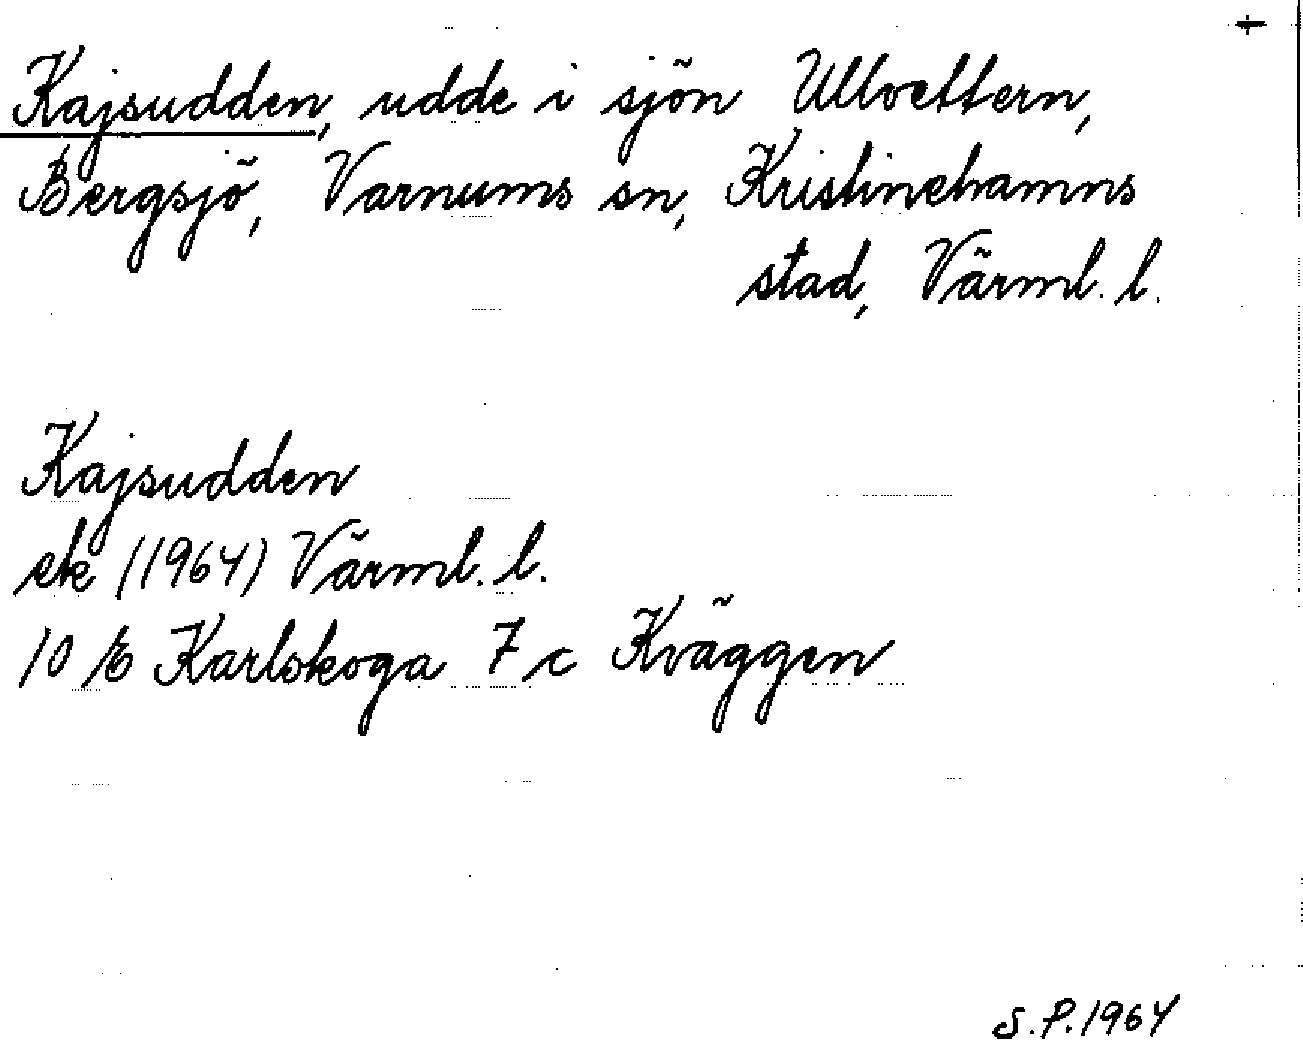 Kajsudden, udde i sjön Ullvettern,
Bergsjö, Varnums sn, Kristinehamns
stad, Värml. l.
Kajsudden
ek (1964) Värml. l.
10 E Karlskoga 7 c Kväggen
S.P. 1964